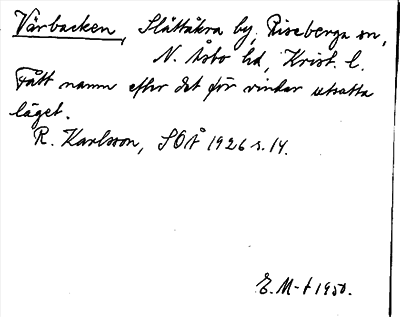 Vårbacken, Slättåkra by, Riseberga sn,
N. Åsbo hd, Krist. l.
Fått namn efter det för vindar utsatta
läget.
R. Karlsson, SOÅ 1926 s. 14.
E. M-t 1950.